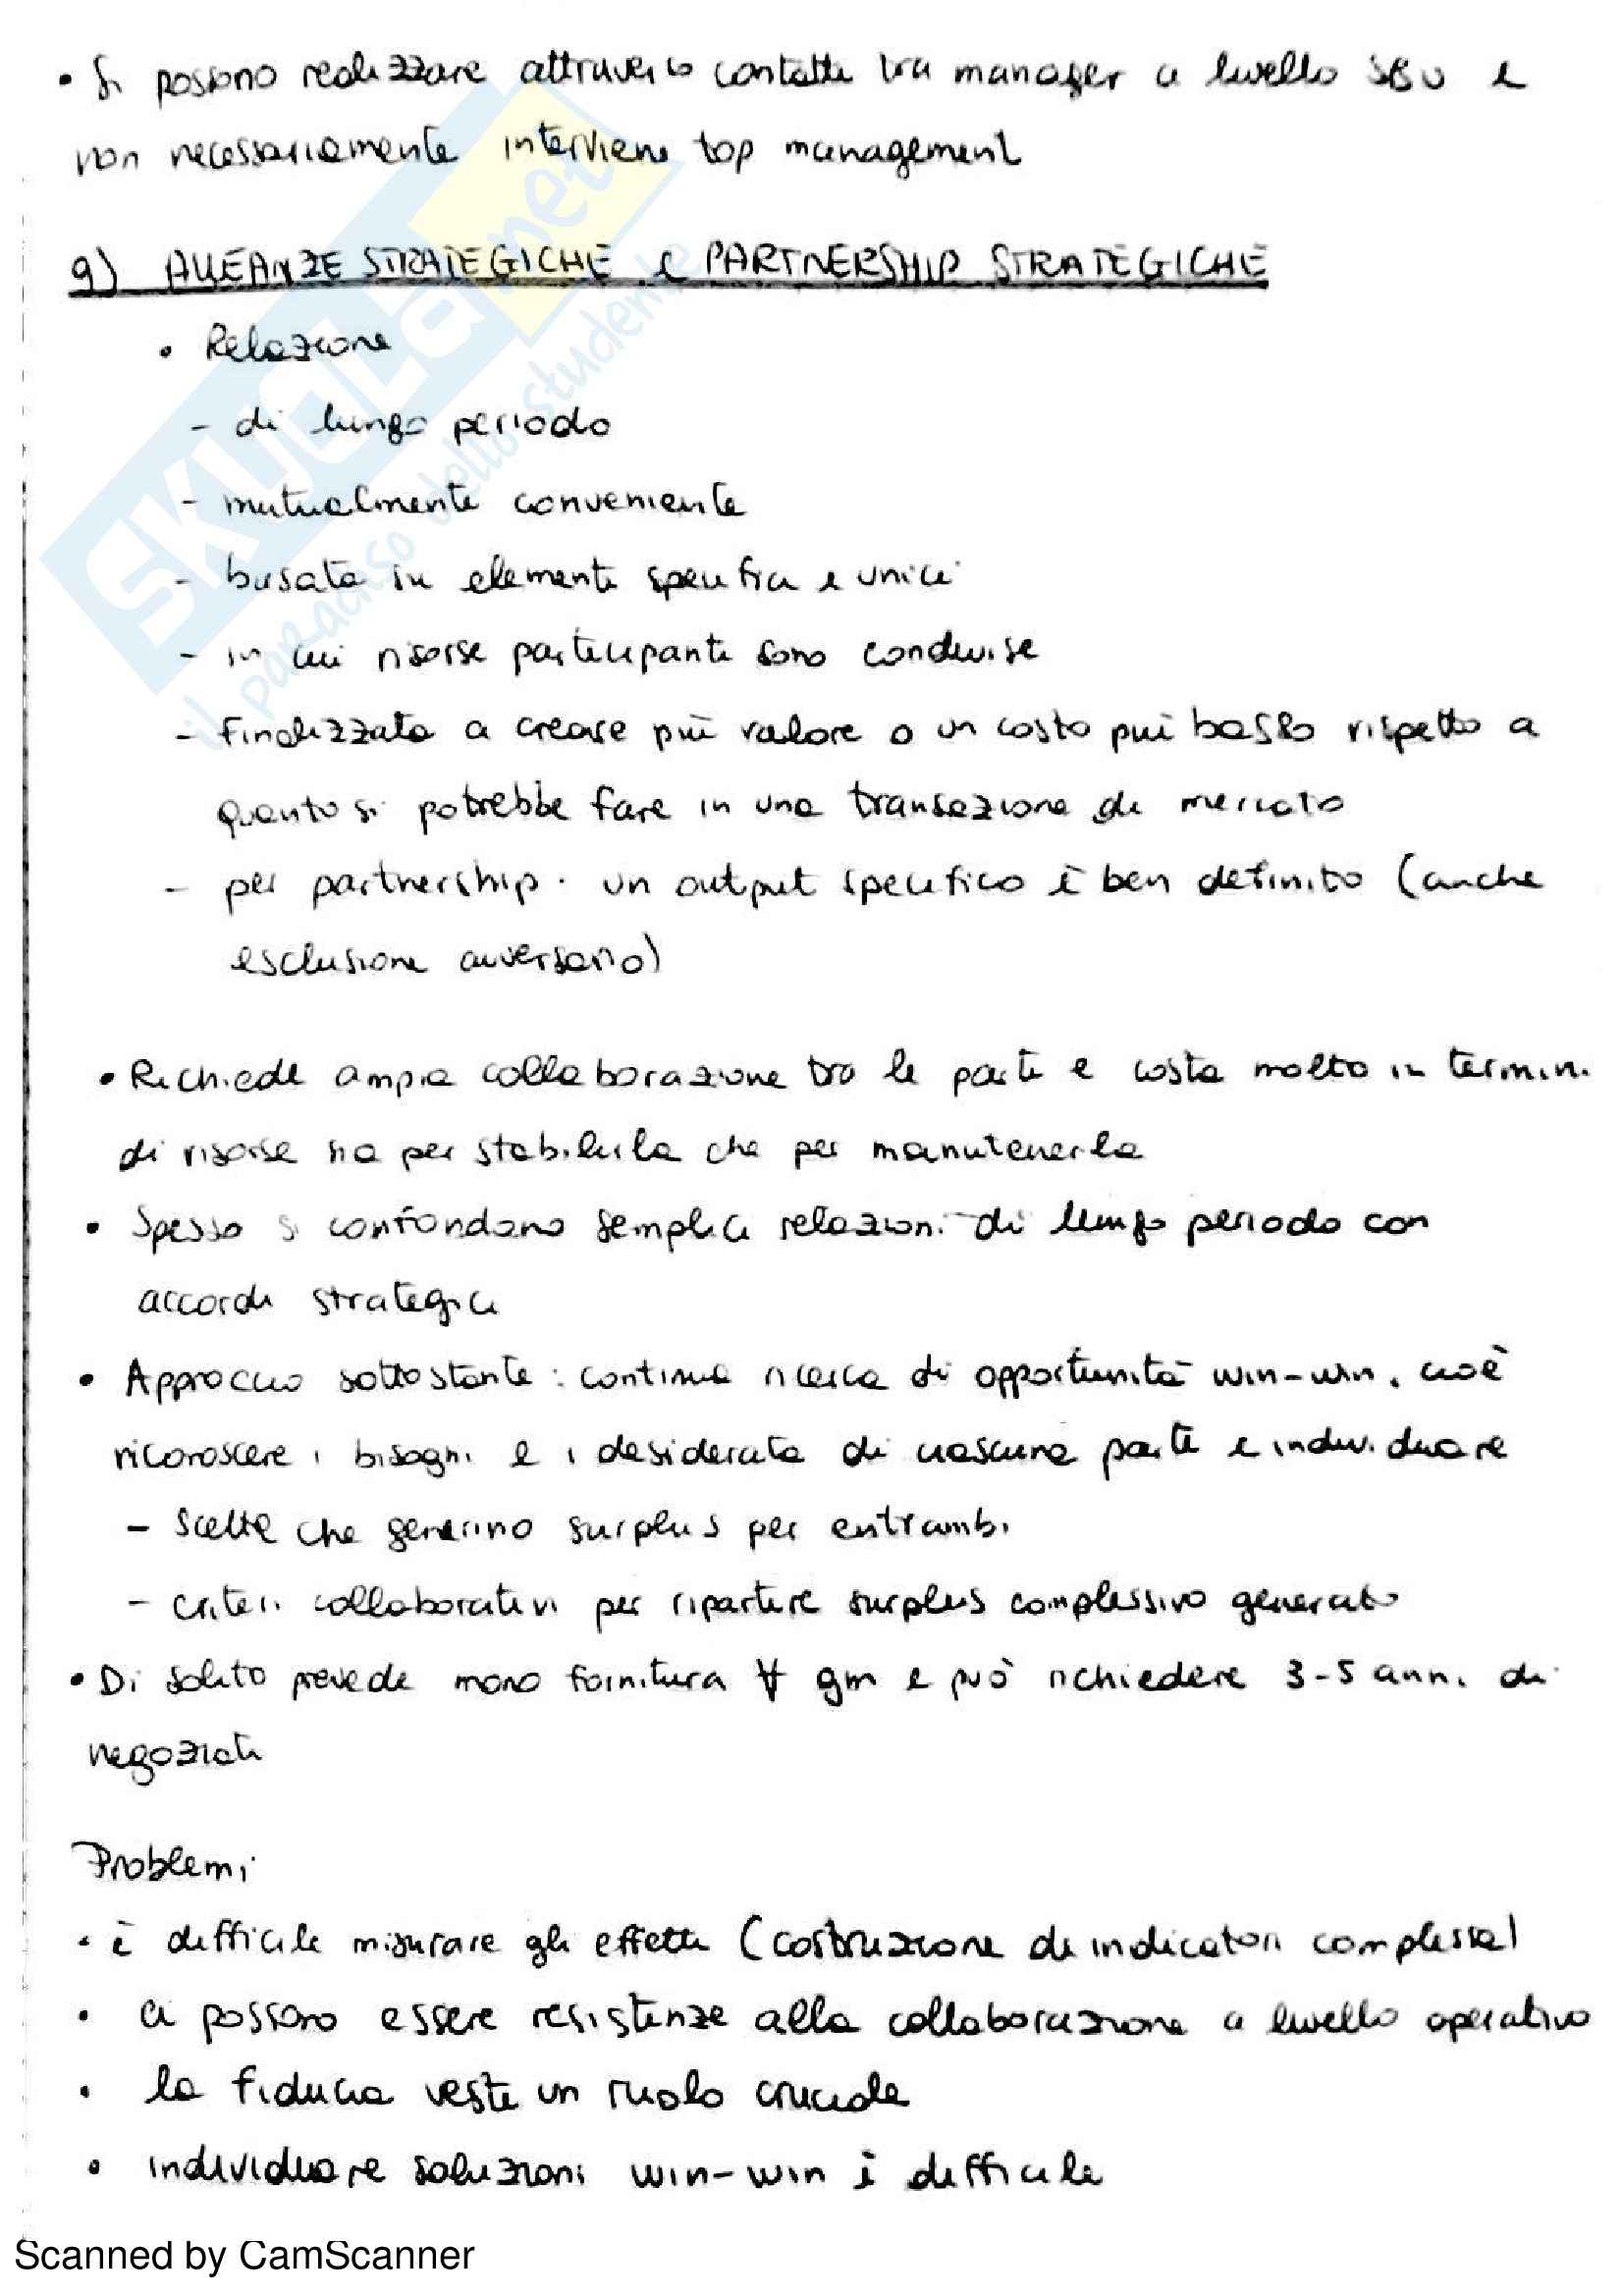 • Si possono realizzare attraverso contatti tra manager a livello SBU e
non necessariamente interviene top management
9) ALLEANZE STRATEGICHE e PARTNERSHIP STRATEGICHE
• Relazione
- di lungo periodo
- mutualmente conveniente
- basata su elementi specifici e unici
- in cui risorse partecipanti sono condivise
- finalizzata a creare più valore o un costo più basso rispetto a
quanto si potrebbe fare in una transazione di mercato
- per partnership. un output specifico è ben definito (anche
esclusione avversario)
• Richiede ampia collaborazione tra le parti e costa molto in termini
di risorse sia per stabilirla che per manutenerla
• Spesso si confondono semplici relazioni di lungo periodo con
accordi strategici
• Approccio sottostante: continua ricerca di opportunità win-win, cioè
riconoscere i bisogni e i desiderata di ciascuna parte e individuare
- scelte che generino surplus per entrambi
- criteri collaborativi per ripartire surplus complessivo generato
• Di solito prevede mono fornitura ∀ gm e può richiedere 3-5 anni di
negoziati
Problemi
• è difficile misurare gli effetti (costruzione di indicatori complessa)
• ci possono essere resistenze alla collaborazione a livello operativo
• la fiducia veste un ruolo cruciale
• individuare soluzioni win-win è difficile
SKUOLA.net
il paradiso dello studente
Scanned by CamScanner